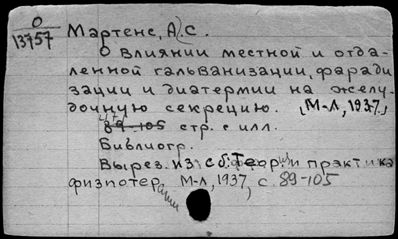 О
13757
Мартенс, А. С.
О влиянии местной и отда-
ленной гальванизации, фаради
зации и диатермии на желу-
дочную секрецию. [М-Л, 1937.]
89-105 стр. с илл.
Библиогр.
Вырез. из: сб: Теории и практика
физиотерапии М-Л, 1937, с. 89-105